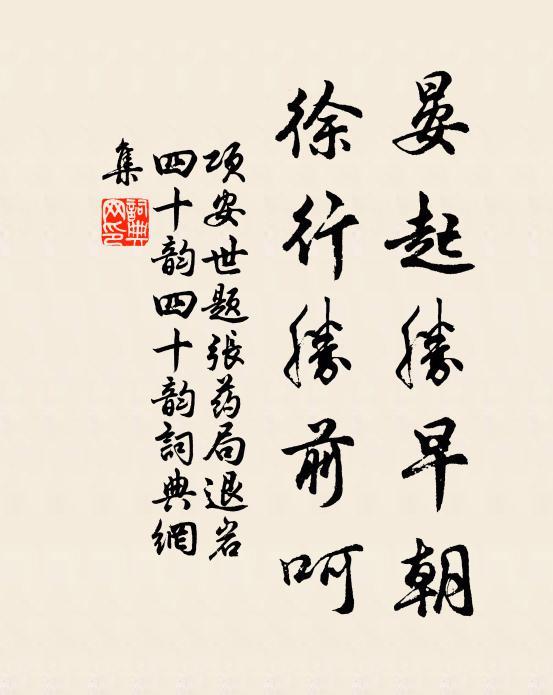 晏起勝早朝
徐行勝前呵
项安世题張药局退岩
四十韵四十韵詞典網
集
詞典網印